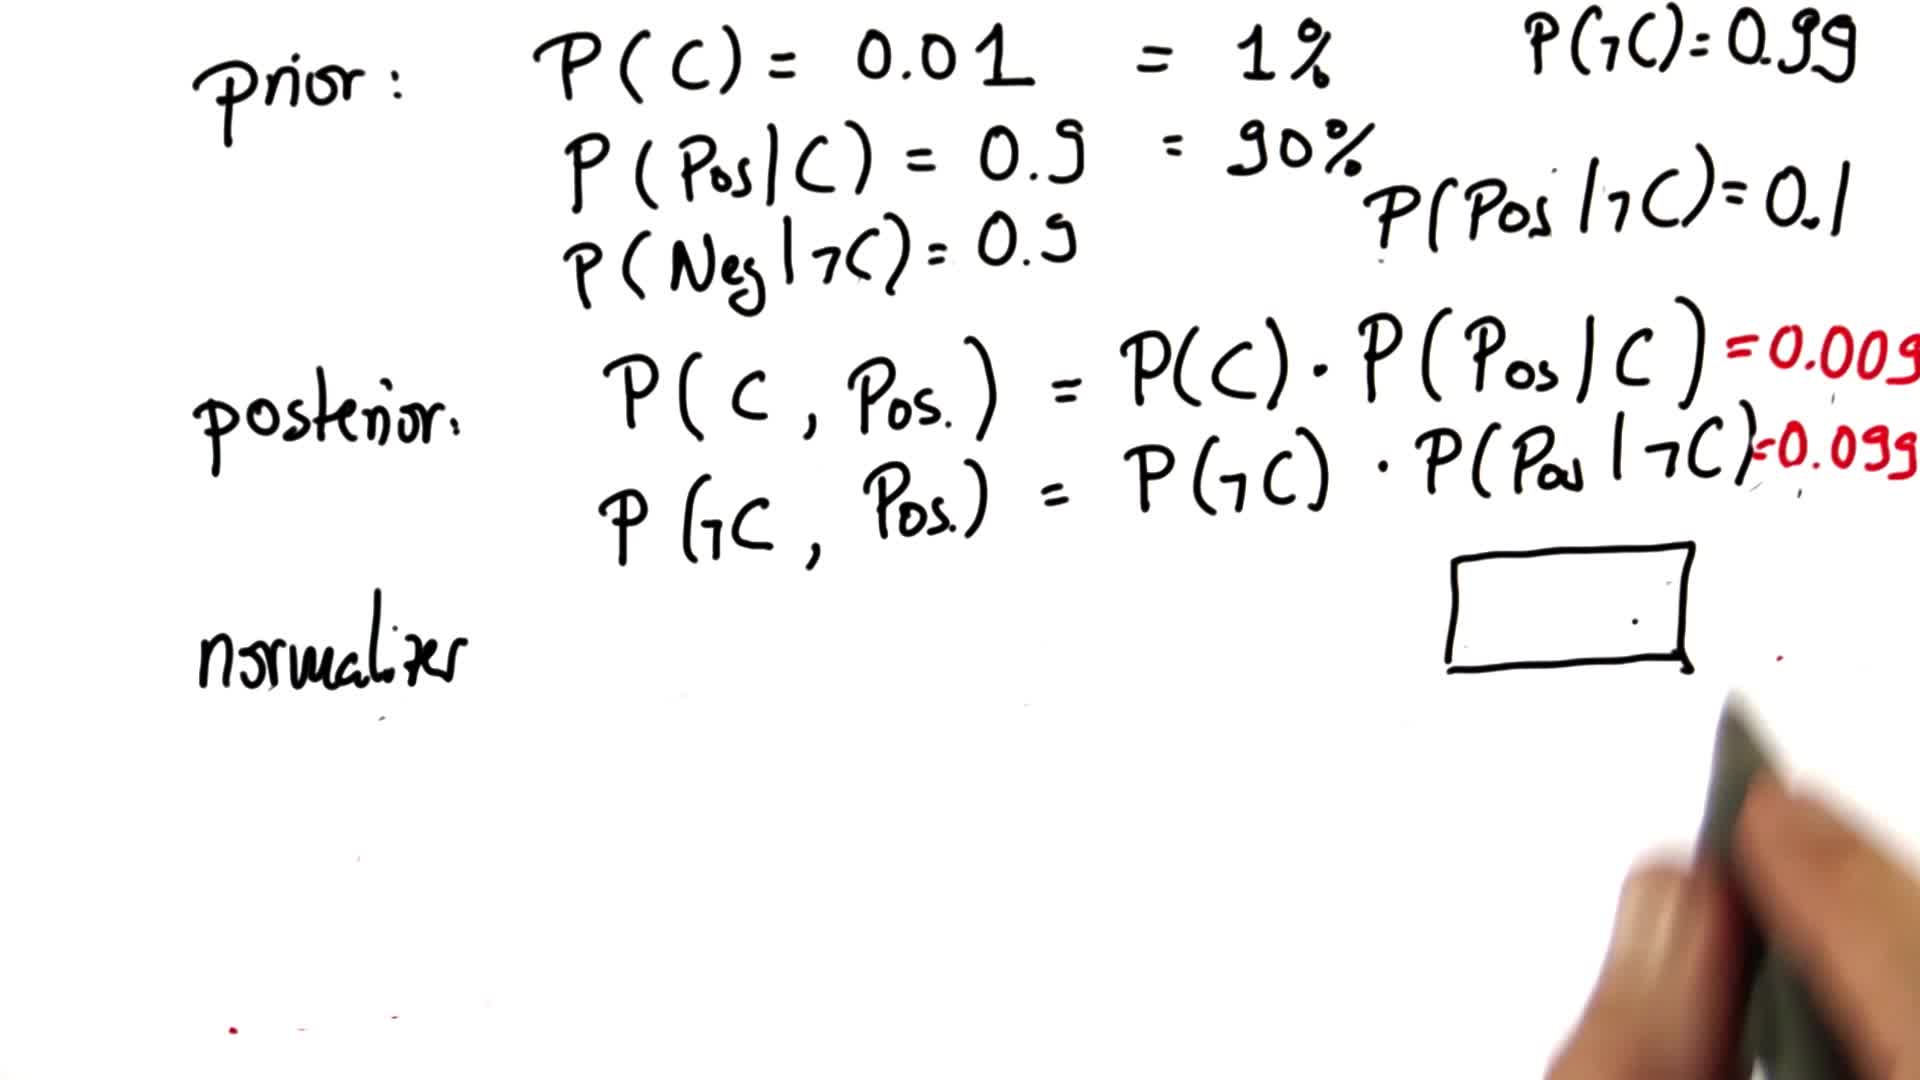 prior: P(C) = 0.01 = 1% P(¬C)=0.99
P(Pos|C) = 0.9 = 90%
P(Pos|¬C)=0.1
P(Neg|¬C)= 0.9
posterior: P(C, Pos.) = P(C)·P(Pos|C) =0.009
P(¬C, Pos.) = P(¬C) · P(Pos|¬C)=0.099
normalizer